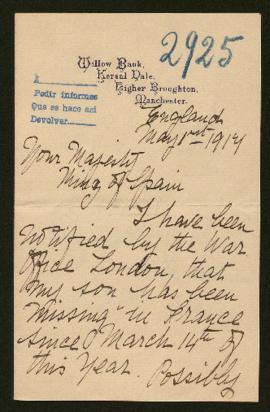 2925
Willow Bank,
Kersal Vale,
Higher Broughton,
Manchester.
Pedir informes
Que se hace así
Devolver
England
May 1st 1917
Your Majesty
King of Spain
I have been
notified by the War
Office London, that
my son has been
"Missing" in France
since March 14th of
this Year. Possibly